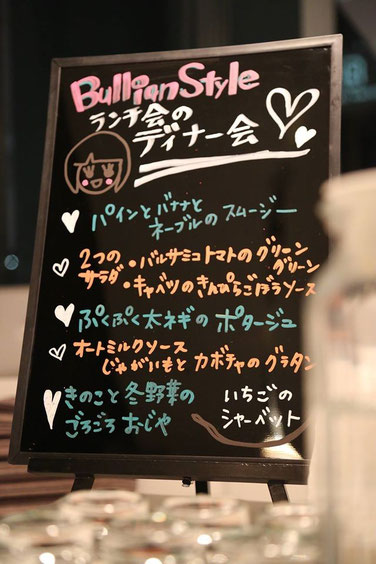 Bullian Style
ランチ会の
ディナー会
パインとバナナと
ネーブルのスムージー
2つの
サラダ
・バルサミコトマトのグリーン
グリーン
・キャベツのきんぴらごぼうソース
ぷくぷく太ネギのポタージュ
オートミルクソース
じゃがいもとカボチャのグラタン
きのこと冬野菜の
ごろごろおじや
いちごの
シャーベット